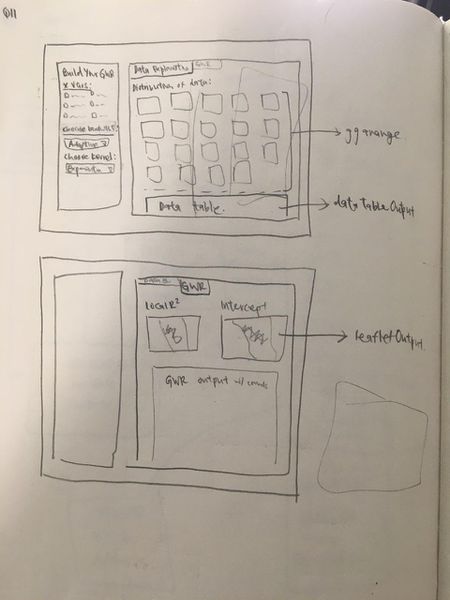 Q11
Build Your GWR
X Vars:
Choose bandwidth:
Adaptive
Choose kernel:
Exponential
Data Exploration GWR
Distribution of data:
Data table.
ggarrange
dataTableOutput
GWR
Local R²
Intercept
GWR output w/ coords
leafletOutput